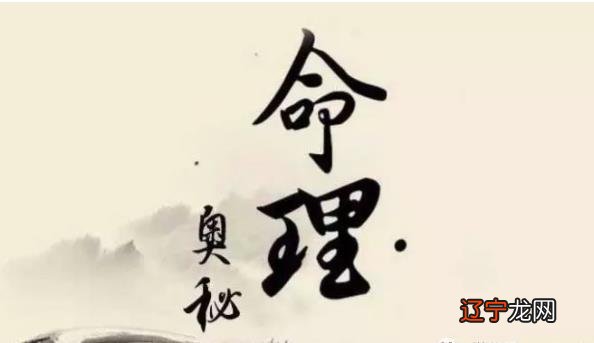 命理
奥秘
辽宁龙网